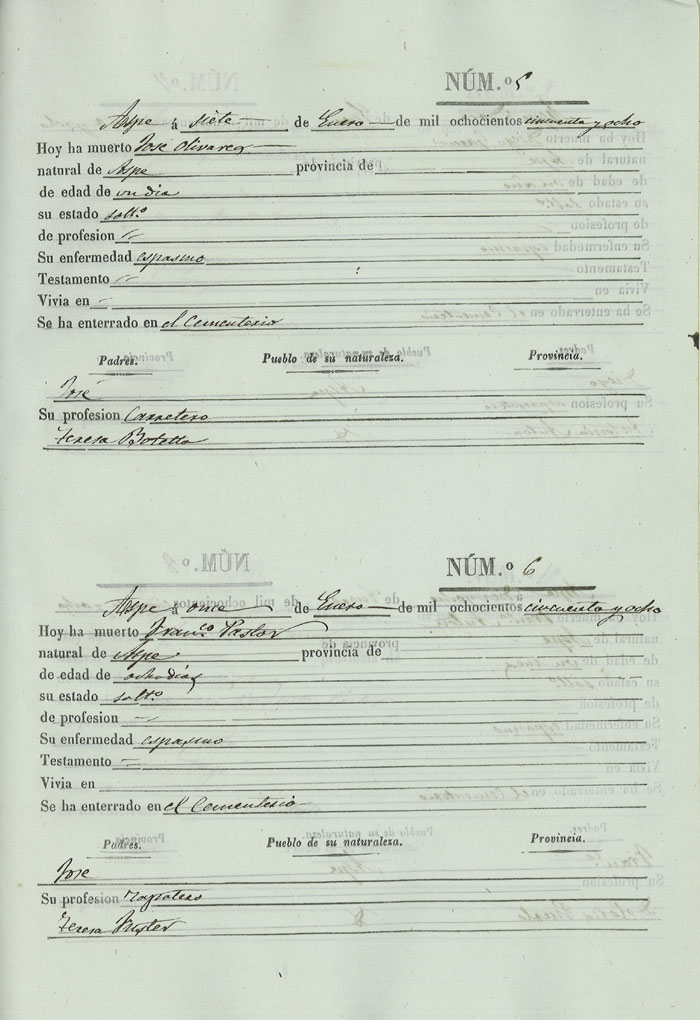 NÚM.º 5
Aspe á siete de Enero de mil ochocientos cincuenta y ocho
Hoy ha muerto José Olivares
natural de Aspe provincia de
de edad de un dia
su estado solt.º
de profesion "
Su enfermedad espasmo
Testamento "
Vivia en
Se ha enterrado en el Cementerio
Padres. Pueblo de su naturaleza. Provincia.
José
Su profesion Carretero
Teresa Botella
NÚM.º 6
Aspe á once de Enero de mil ochocientos cincuenta y ocho
Hoy ha muerto Franc.co Pastor
natural de Aspe provincia de
de edad de ocho dias
su estado solt.º
de profesion "
Su enfermedad espasmo
Testamento "
Vivia en
Se ha enterrado en el Cementerio
Padres. Pueblo de su naturaleza. Provincia.
José
Su profesion Zapatero
Teresa